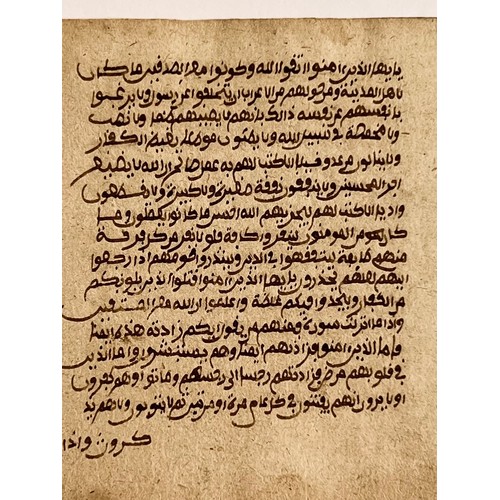 يايها الذين امنوا اتقوا الله وكونوا مع الصدفين ما كان
لاهل المدينة ومن حولهم من الاعراب ان يتخلفوا عن رسول ولا يرغبوا
بانفسهم عن نفسه ذالك بانهم لا يصيبهم ظما ولا نصب
ولا مخمصة في سبيل الله ولا يطئون موطئا يغيظ الكفار
ولا ينالون من عدو نيلا الا كتب لهم به عمل صالح ان الله لا يضيع
اجر المحسنين ولا ينفقون نفقة صغيرة ولا كبيرة ولا يقطعون
واديا الا كتب لهم ليجزيهم الله احسن ما كانوا يعملون وما
كان المومنون لينفروا كافة فلولا نفر من كل فرقة
منهم طايفة ليتفقهوا في الدين ولينذروا قومهم اذا رجعوا
اليهم لعلهم يحذرون يايها الذين امنوا قتلوا الذين يلونكم
من الكفار وليجدوا فيكم غلظة واعلموا ان الله مع المتقين
واذا ما انزلت سورة فمنهم من يقول ايكم زادته هذه ايمنا
فاما الذين امنوا فزادتهم ايمنا وهم يستبشرون واما الذين
في قلوبهم مرض فزادتهم رجسا الى رجسهم وماتوا وهم كفرون
اولا يرون انهم يفتنون في كل عام مرة او مرتين ثم لا يتوبون ولا هم يذ
كرون واذا